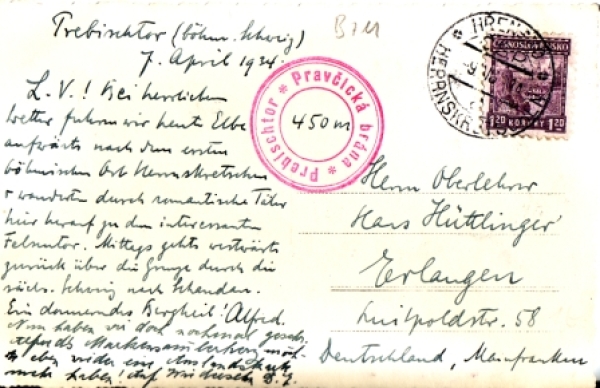 Prebischtor (böhm. Schweiz)
B711
7. April 1934.
L. V.! Bei herrlichem
Wetter fuhren wir heute Elbe
aufwärts nach dem ersten
böhmischen Ort Herrnskretschen
u. wanderten durch romantische Täler
hier herauf zu dem interessanten
Felsentor. Mittags gehts westwärts
zurück über die Grenze durch die
sächs. Schweiz nach Schandau.
Ein donnerndes Bergheil! Alfred.
Nun haben wir doch nochmal
Alfreds
eben wieder eine Auslandskarte
haben! Auf Wiedersehn
Pravčická brána * Prebischtor *
450m
HŘENSKO
HERRNSKRETSCHEN
ČESKOSLOVENSKO
1.20 KORUNY 1.20
Herrn Oberlehrer
Hans Hüttlinger
Erlangen
Luitpoldstr. 58
Deutschland, Menfranken